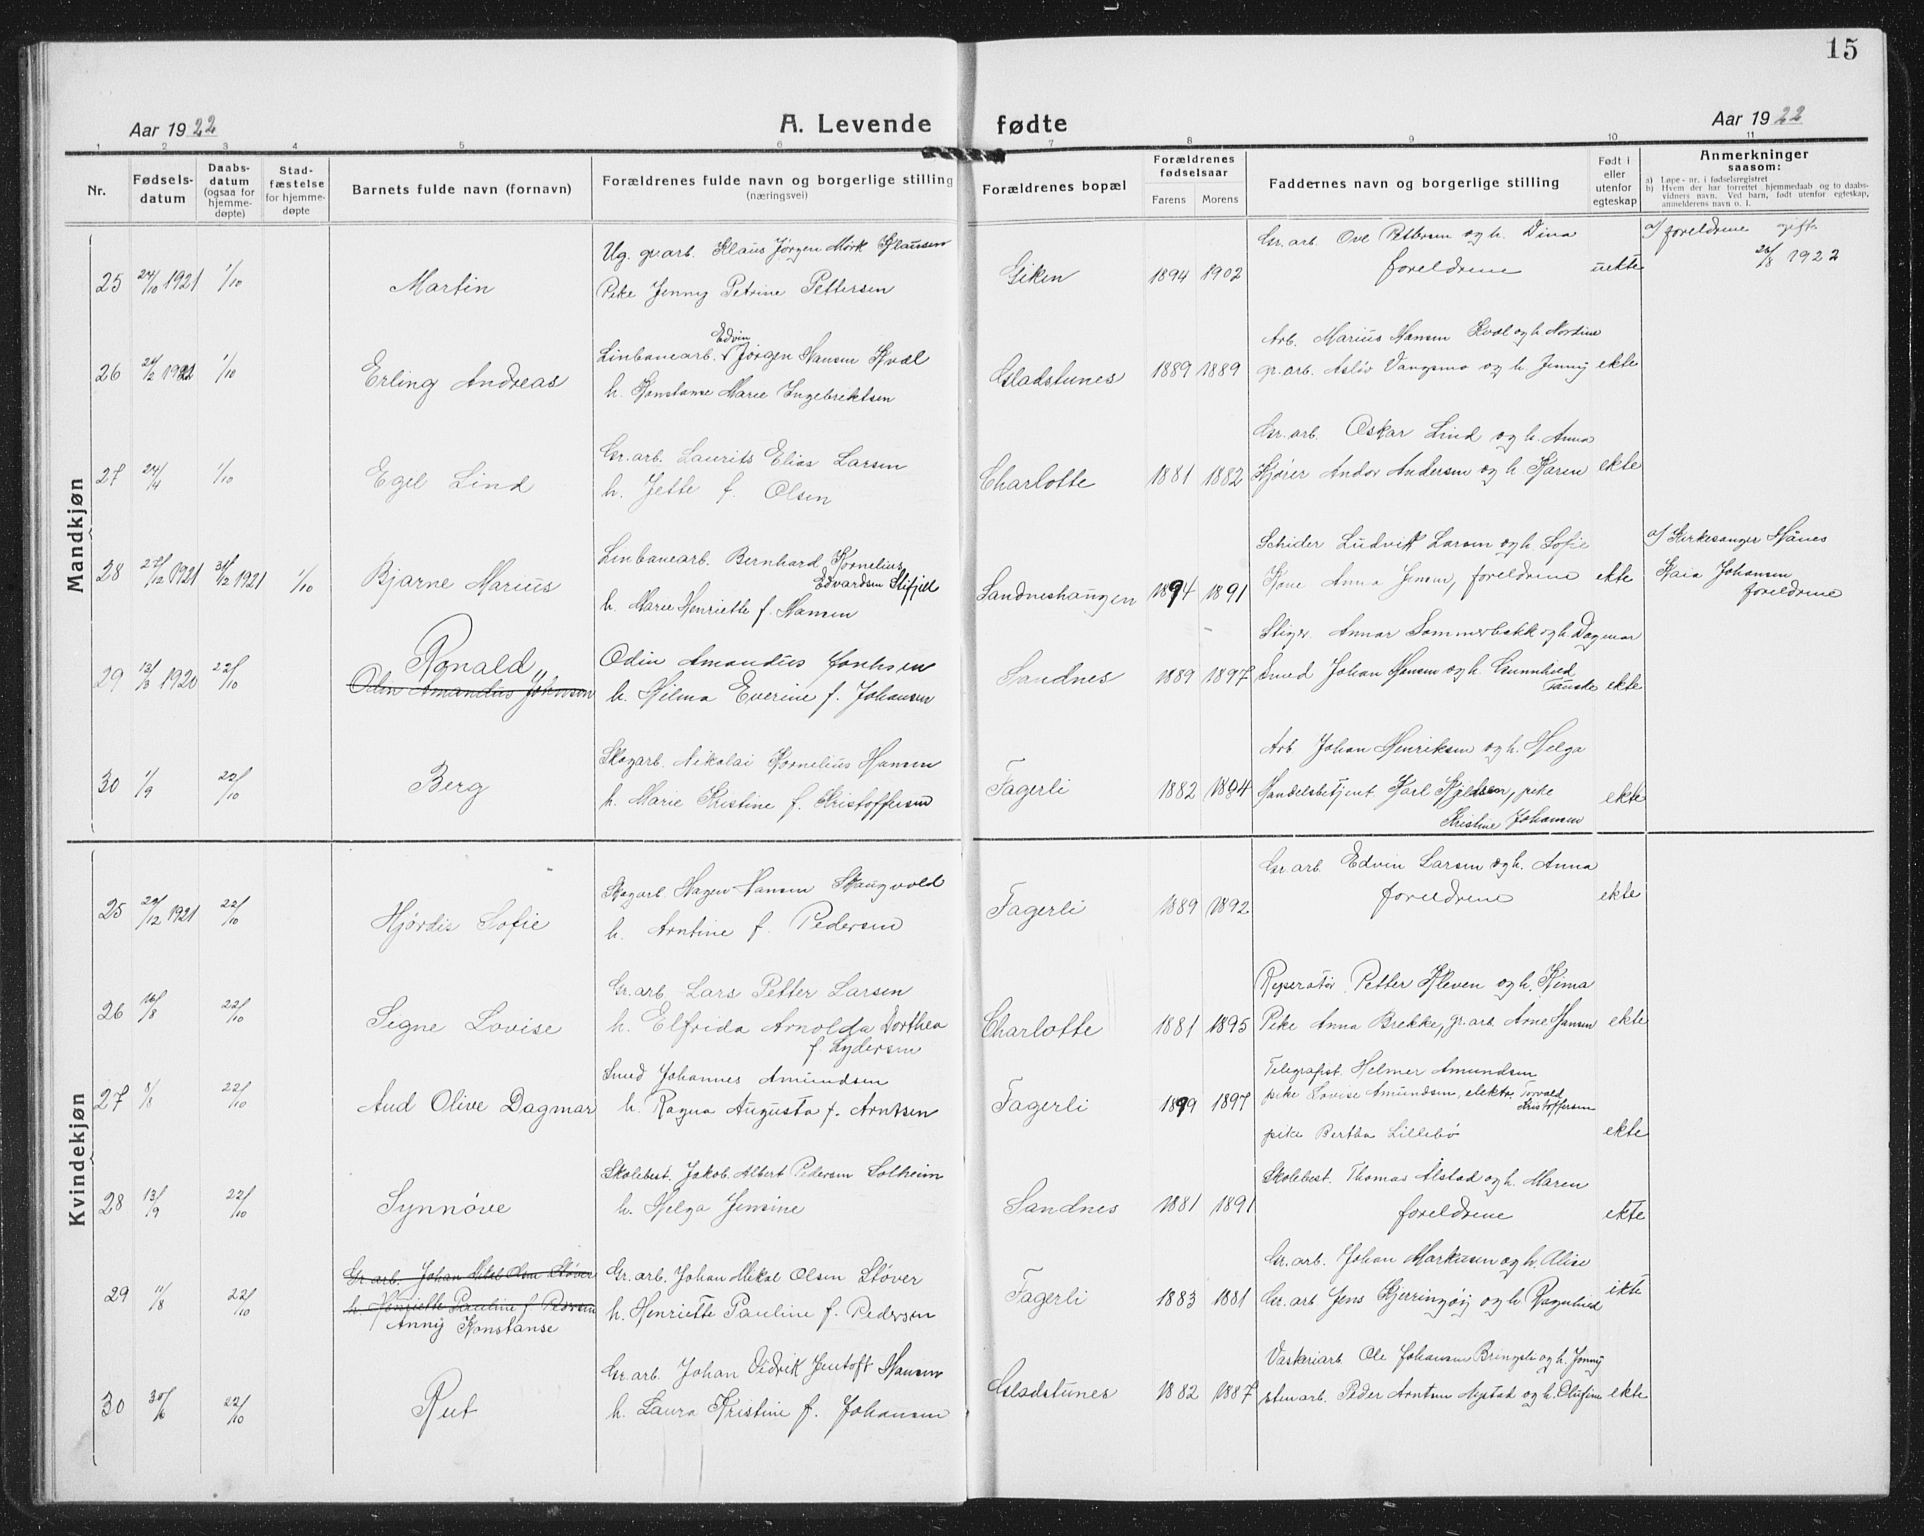 15
Aar 1922 A. Levende fødte Aar 1922
1 2 3 4 5 6 7 8 9 10 11
Nr. Fødsels-datum Daabs-datum (ogsaa for hjemme-døpte) Stad-fæstelse for hjemme-døpte Barnets fulde navn (fornavn) Forældrenes fulde navn og borgerlige stilling (næringsvei) Forældrenes bopæl Forældrenes fødselsaar Farens Morens Faddernes navn og borgerlige stilling Født i eller utenfor egteskap Anmerkninger saasom:
a) Løpe-nr. i fødselsregistret
b) Hvem der har forrettet hjemmedaab og to daabs-vidners navn. Ved barn, født utenfor egteskap, anmelderens navn o. l.
Mandkjøn
Ug. grarb. Klaus Jørgen Mørk Klausen Gr. arb. Ove Pettersen og h. Dina a/ foreldrene gift
25 24/10 1921 1/10 Martin Pike Jenny Petrine Pettersen Giken 1894 1902 foreldrene uekte 26/8 1922
Edvin
Linbanearb. Jørgen Hansen Kvæl Arb. Marius Hansen Kvæl og h. Nordine
26 24/2 1922 1/10 Erling Andreas h. Konstanse Marie Ingebriktsen Gladstunes 1889 1889 gr. arb. Asløv Vangsmo og h. Jenny ekte
Gr. arb. Laurits Elias Larsen Gr. arb. Oskar Lind og h. Anna
27 24/4 1/10 Egil Lind h. Jette f. Olsen Charlotte 1881 1882 Kjører Andor Andersen og h. Karen ekte
Linbanearb. Bernhard Kornelius Edvardsen Stifjell Scheider Ludvik Larsen og h. Sofie a/ Kirkesanger Hånes
28 27/12 1921 31/12 1921 1/10 Bjarne Marius h. Marie Henriette f. Hansen Sandneshaugen 1894 1891 Kone Anna Jensen, foreldrene ekte Kaia Johansen
foreldrene
Ronald Odin Amandus Johnsen Stiger Annar Sommerbakk og h. Dagmar
29 13/3 1920 22/10 Odin Amandus Johnsen h. Hilma Everine f. Johansen Sandnes 1889 1897 Smed Johan Hansen og h. Gunnhild Fauske ekte
Skogarb. Nikolai Kornelius Hansen Arb. Johan Henriksen og h. Helga
30 1/9 22/10 Berg h. Marie Kristine f. Kristoffersen Fagerli 1882 1894 Handelsbetjent Karl Kjeldsen, pike Kristine Johansen ekte
Kvindekjøn
Skogarb. Hagen Hansen Skaugvold Gr. arb. Edvin Larsen og h. Anna
25 29/12 1921 22/10 Hjørdis Sofie h. Arntine f. Pedersen Fagerli 1889 1892 foreldrene ekte
Gr. arb. Lars Petter Larsen Reperatør Petter Kleven og h. Rima
26 16/8 22/10 Signe Lovise h. Elfrida Arnolda Dorthea f. Lydersen Charlotte 1881 1895 Pike Anna Brekke, gr. arb. Arne Hansen ekte
Smed Johannes Amundsen Telegrafist. Helmer Amundsen
27 8/8 22/10 Aud Olive Dagmar h. Ragna Augusta f. Arntsen Fagerli 1899 1897 pike Lovise Amundsen, elektr. Torvald Kristoffersen
pike Bertha Lillebø ekte
Skolebest. Jakob Albert Pedersen Solheim Skolebest. Thomas Alstad og h. Maren
28 13/9 22/10 Synnøve h. Helga Jensine Sandnes 1881 1891 foreldrene ekte
Gr. arb. Johan Mikal Olsen Støver Gr. arb. Johan Mikal Olsen Støver Gr. arb. Johan Markusen og h. Alise
29 11/8 22/10 h. Henriette Pauline f. Pedersen h. Henriette Pauline f. Pedersen Fagerli 1883 1881 Gr. arb. Jens Kjerringøy og h. Ragnhild ekte
Anny Konstanse
Gr. arb. Johan Didrik Jentoft Hansen Vaskeriarb. Ole Johansen Bringsli og h. Jenny
30 30/6 22/10 Rut h. Laura Kristine f. Johansen Gladstunes 1882 1887 stenarb. Peder Arntsen Nystad og h. Olufine ekte